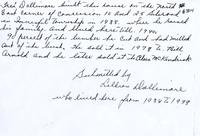 Fred Dallimore built this house on the North
East corner of Concession 10 and St. Iderad
in Township in 1938. when he raised
his family, and lived here till 1944.
90 percent of the lumber he cut and had milled
out of the bush, He sold it in 1978 to Bill
Arnold and he later sold it to Chris McKendrick
Submitted by
Lillian Dallimore
who lived here from 1938 to 1944